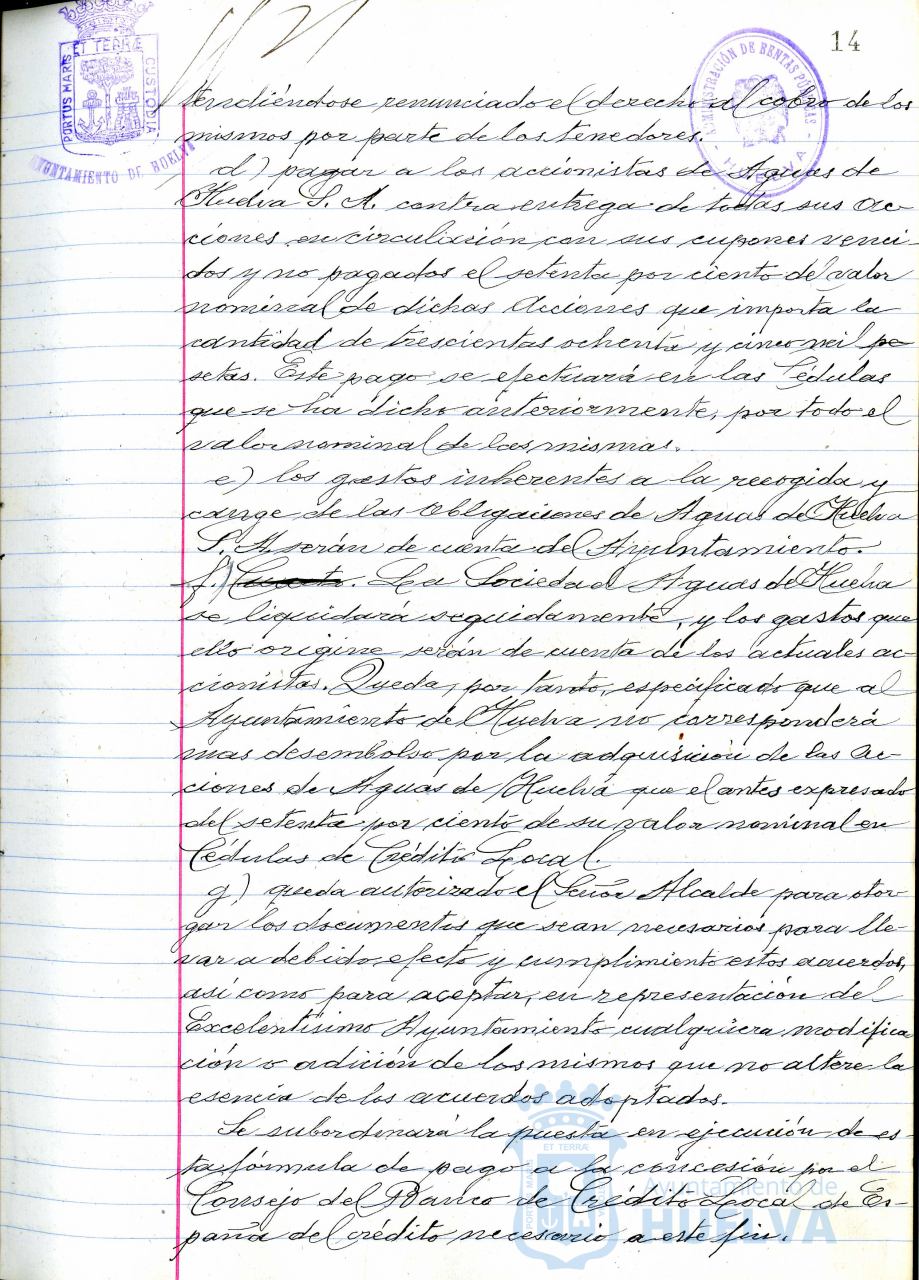 14
PORTUS MARIS ET TERRÆ CUSTODIA
AYUNTAMIENTO DE HUELVA
ADMINISTRACIÓN DE RENTAS PÚBLICAS
- HUELVA -
tendiéndose renunciado el derecho al cobro de los
mismos por parte de los tenedores.
d) pagar a los accionistas de Aguas de
Huelva S. A. contra entrega de todas sus ac-
ciones en circulación con sus cupones venci-
dos y no pagados el setenta por ciento del valor
nominal de dichas Acciones que importa la
cantidad de trescientas ochenta y cinco mil pe-
setas. Este pago se efectuará en las Cédulas
que se ha dicho anteriormente, por todo el
valor nominal de las mismas.
e) los gastos inherentes a la recogida y
cange de las Obligaciones de Aguas de Huelva
S. A. serán de cuenta del Ayuntamiento.
f.) La Sociedad Aguas de Huelva
se liquidará seguidamente, y los gastos que
ello origine serán de cuenta de los actuales ac-
cionistas. Queda, por tanto, especificado que al
Ayuntamiento de Huelva no corresponderá
mas desembolso por la adquisición de las Ac-
ciones de Aguas de Huelva que el antes expresado
del setenta por ciento de su valor nominal en
Cédulas de Crédito Local.
g) queda autorizado el Señor Alcalde para otor-
gar los documentos que sean necesarios para lle-
var a debido efecto y cumplimiento estos acuerdos,
así como para aceptar, en representación del
Excelentísimo Ayuntamiento cualquiera modifica
ción o adición de los mismos que no altere la
esencia de los acuerdos adoptados.
Se subordinará la puesta en ejecución de es-
ta fórmula de pago a la concesión por el
Consejo del Banco de Crédito Local de Es-
paña del crédito necesario a este fin.
Ayuntamiento de
HUELVA